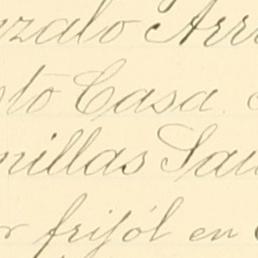 nzalo Arr
sto Casa.
millas Sau
r frijól en